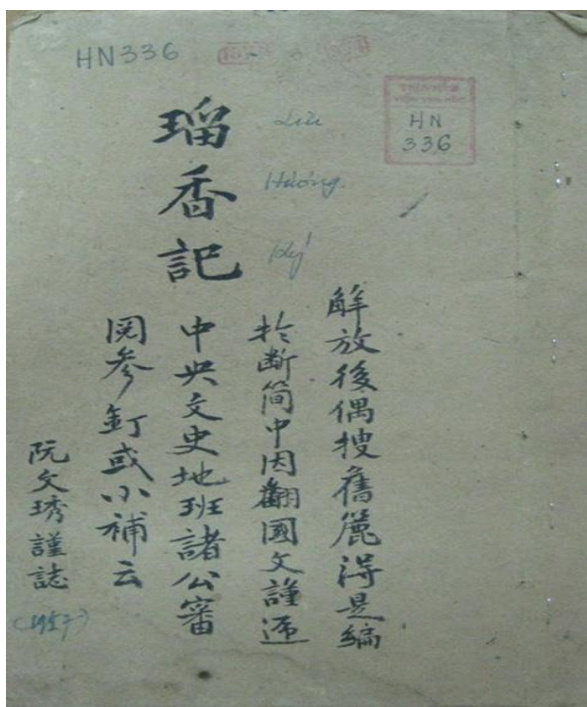 HN336
HN
336
瑠香記
Lưu
Hương
Ký
解放後偶搜舊簏得是編
扵断简中因翻國文謹逓
中央文史地班諸公審
閲参訂或小補云
阮文琇謹誌